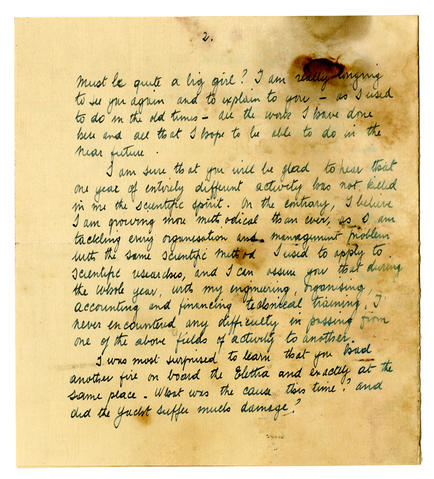 2.
Must be quite a big girl? I am really longing
to see you again and to explain to you - as I used
to do in the old times - all the work I have done
here and all that I hope to be able to do in the
near future.
I am sure that you will be glad to hear that
one year of entirely different activity has not killed
in me the scientific spirit. On the contrary, I believe
I am growing more methodical than ever, as I am
tackling every organisation and management problem
with the same scientific method I used to apply to
scientific researches, and I can assure you that during
the whole year, with my engineering, organising,
accounting and financing technical training, I
never encountered any difficulty in passing from
one of the above fields of activity to another.
I was most surprised to learn that you had
another fire on board the Elettra and exactly at the
same place - What was the cause this time? and
did the Yacht suffer much damage?